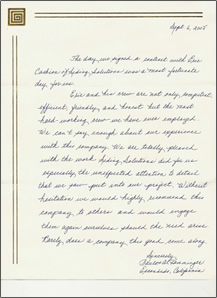 Sept 6, 2008
The day we signed a contract with Eric
of Siding Solutions was a most fortunate
day for us.
Eric and his crew are not only competent,
efficient, friendly, and honest but the most
hard-working crew we have ever employed.
We can't say enough about our experience
with this company. We are totally pleased
with the work Siding Solutions did for us
especially the unexpected attention to detail
that was put into our project. Without
hesitation we would highly recommend this
company to others and would engage
them again ourselves should the need arise.
Rarely does a company this good come along.
Sincerely,
Escondido, California